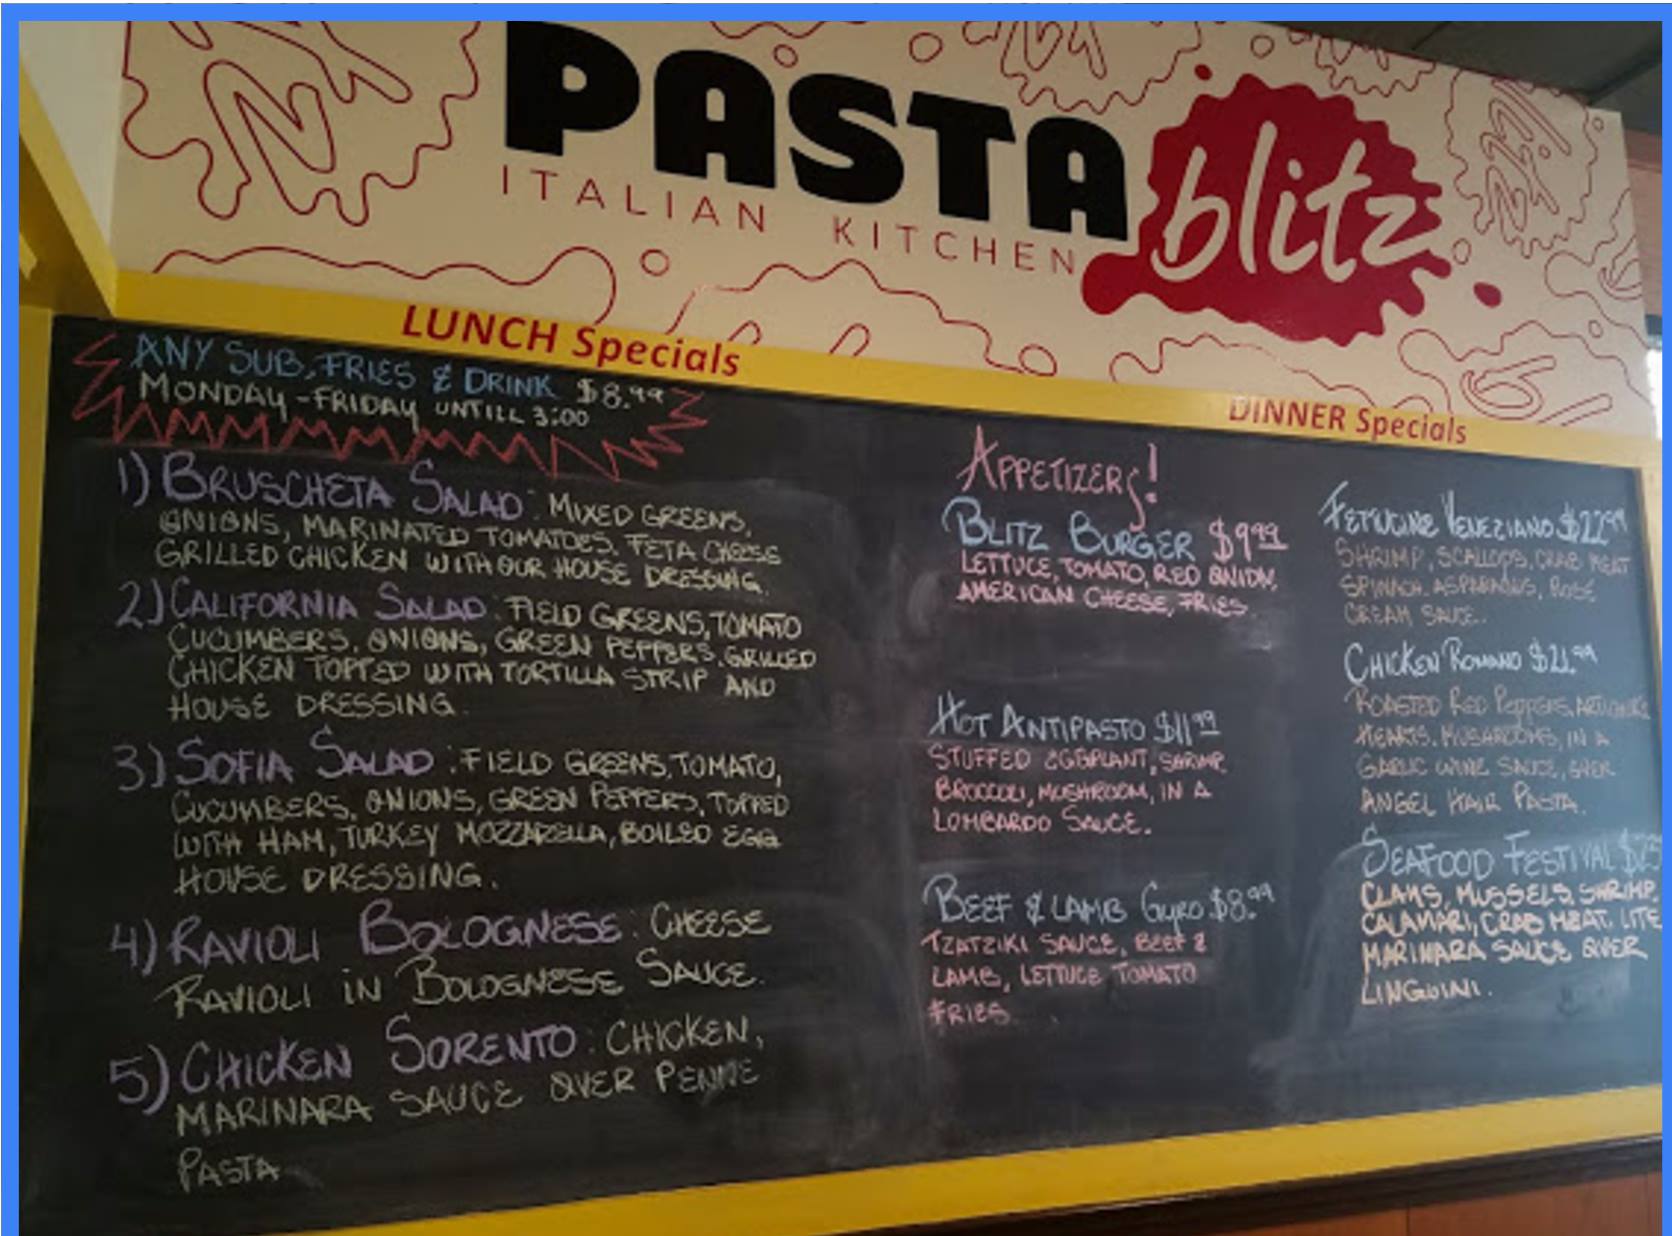 PASTA blitz
ITALIAN KITCHEN
LUNCH Specials
ANY SUB, FRIES & DRINK $8.99
MONDAY-FRIDAY UNTILL 3:00
1) BRUSCHETA SALAD: MIXED GREENS,
ONIONS, MARINATED TOMATOES. FETA CHEESE
GRILLED CHICKEN WITH OUR HOUSE DRESSING.
2) CALIFORNIA SALAD: FIELD GREENS, TOMATO
CUCUMBERS, ONIONS, GREEN PEPPERS. GRILLED
CHICKEN TOPPED WITH TORTILLA STRIP AND
HOUSE DRESSING.
3) SOFIA SALAD: FIELD GREENS, TOMATO,
CUCUMBERS, ONIONS, GREEN PEPPERS, TOPPED
WITH HAM, TURKEY MOZZARELLA, BOILED EGG
HOUSE DRESSING.
4) RAVIOLI BOLOGNESE: CHEESE
RAVIOLI IN BOLOGNESE SAUCE.
5) CHICKEN SORENTO: CHICKEN,
MARINARA SAUCE OVER PENNE
PASTA
DINNER Specials
APPETIZERS!
BLITZ BURGER $9.99
LETTUCE, TOMATO, RED ONION,
AMERICAN CHEESE, FRIES
HOT ANTIPASTO $11.99
STUFFED EGGPLANT, SHRIMP,
BROCCOLI, MUSHROOM, IN A
LOMBARDO SAUCE.
BEEF & LAMB GYRO $8.99
TZATZIKI SAUCE, BEEF &
LAMB, LETTUCE TOMATO
FRIES
FETTUCINE VENEZIANO $22.99
SHRIMP, SCALLOPS, CRAB MEAT
SPINACH, ASPARAGUS, ROSE
CREAM SAUCE.
CHICKEN ROMANO $21.99
ROASTED RED PEPPERS, ARTICHOKE
HEARTS. MUSHROOMS, IN A
GARLIC WINE SAUCE, OVER
ANGEL HAIR PASTA.
SEAFOOD FESTIVAL
CLAMS, MUSSELS, SHRIMP,
CALAMARI, CRAB MEAT. LITE
MARINARA SAUCE OVER
LINGUINI.